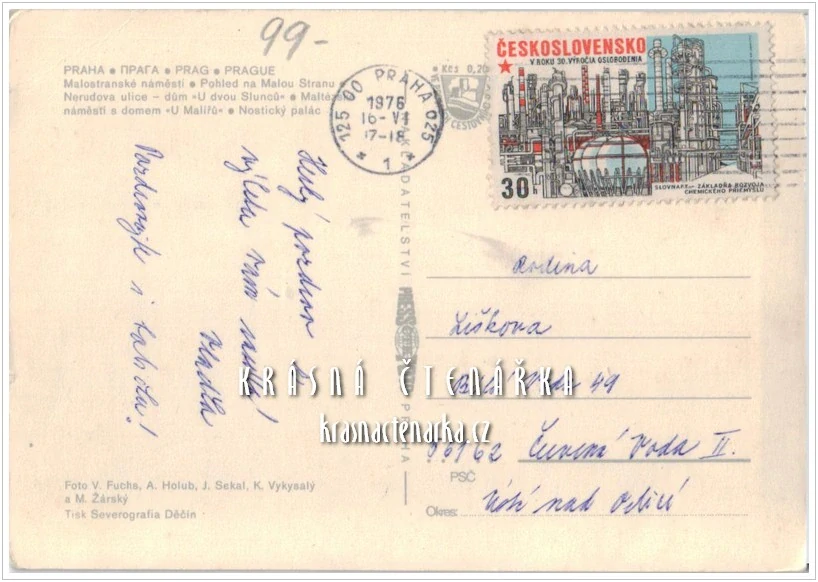 99-
PRAHA • ПРАГА • PRAG • PRAGUE
Malostranské náměstí • Pohled na Malou Stranu
Nerudova ulice – dům »U dvou Slunců« •
náměstí s domem »U Malířů« • Nostický palác
125 00 PRAHA 025
1976
16-VI
17-18
* 1 *
Kčs 0,20
ČESKOSLOVENSKO
V ROKU 30. VÝROČIA OSLOBODENIA
30
SLOVNAFT – ZÁKLADŇA ROZVOJA
CHEMICKÉHO PRIEMYSLU
pozdrav
vám
Vlaďka
Pozdravujte i
NAKLADATELSTVÍ
PRAHA
Rodina
Liškova
49
KRÁSNÁ ČTENÁŘKA
krasnactenarka.cz
56162 Červená Voda II.
PSČ
Okres: Ústí nad Orlicí
Foto V. Fuchs, A. Holub, J. Sekal, K. Vykysalý
a M. Žárský
Tisk Severografia Děčín